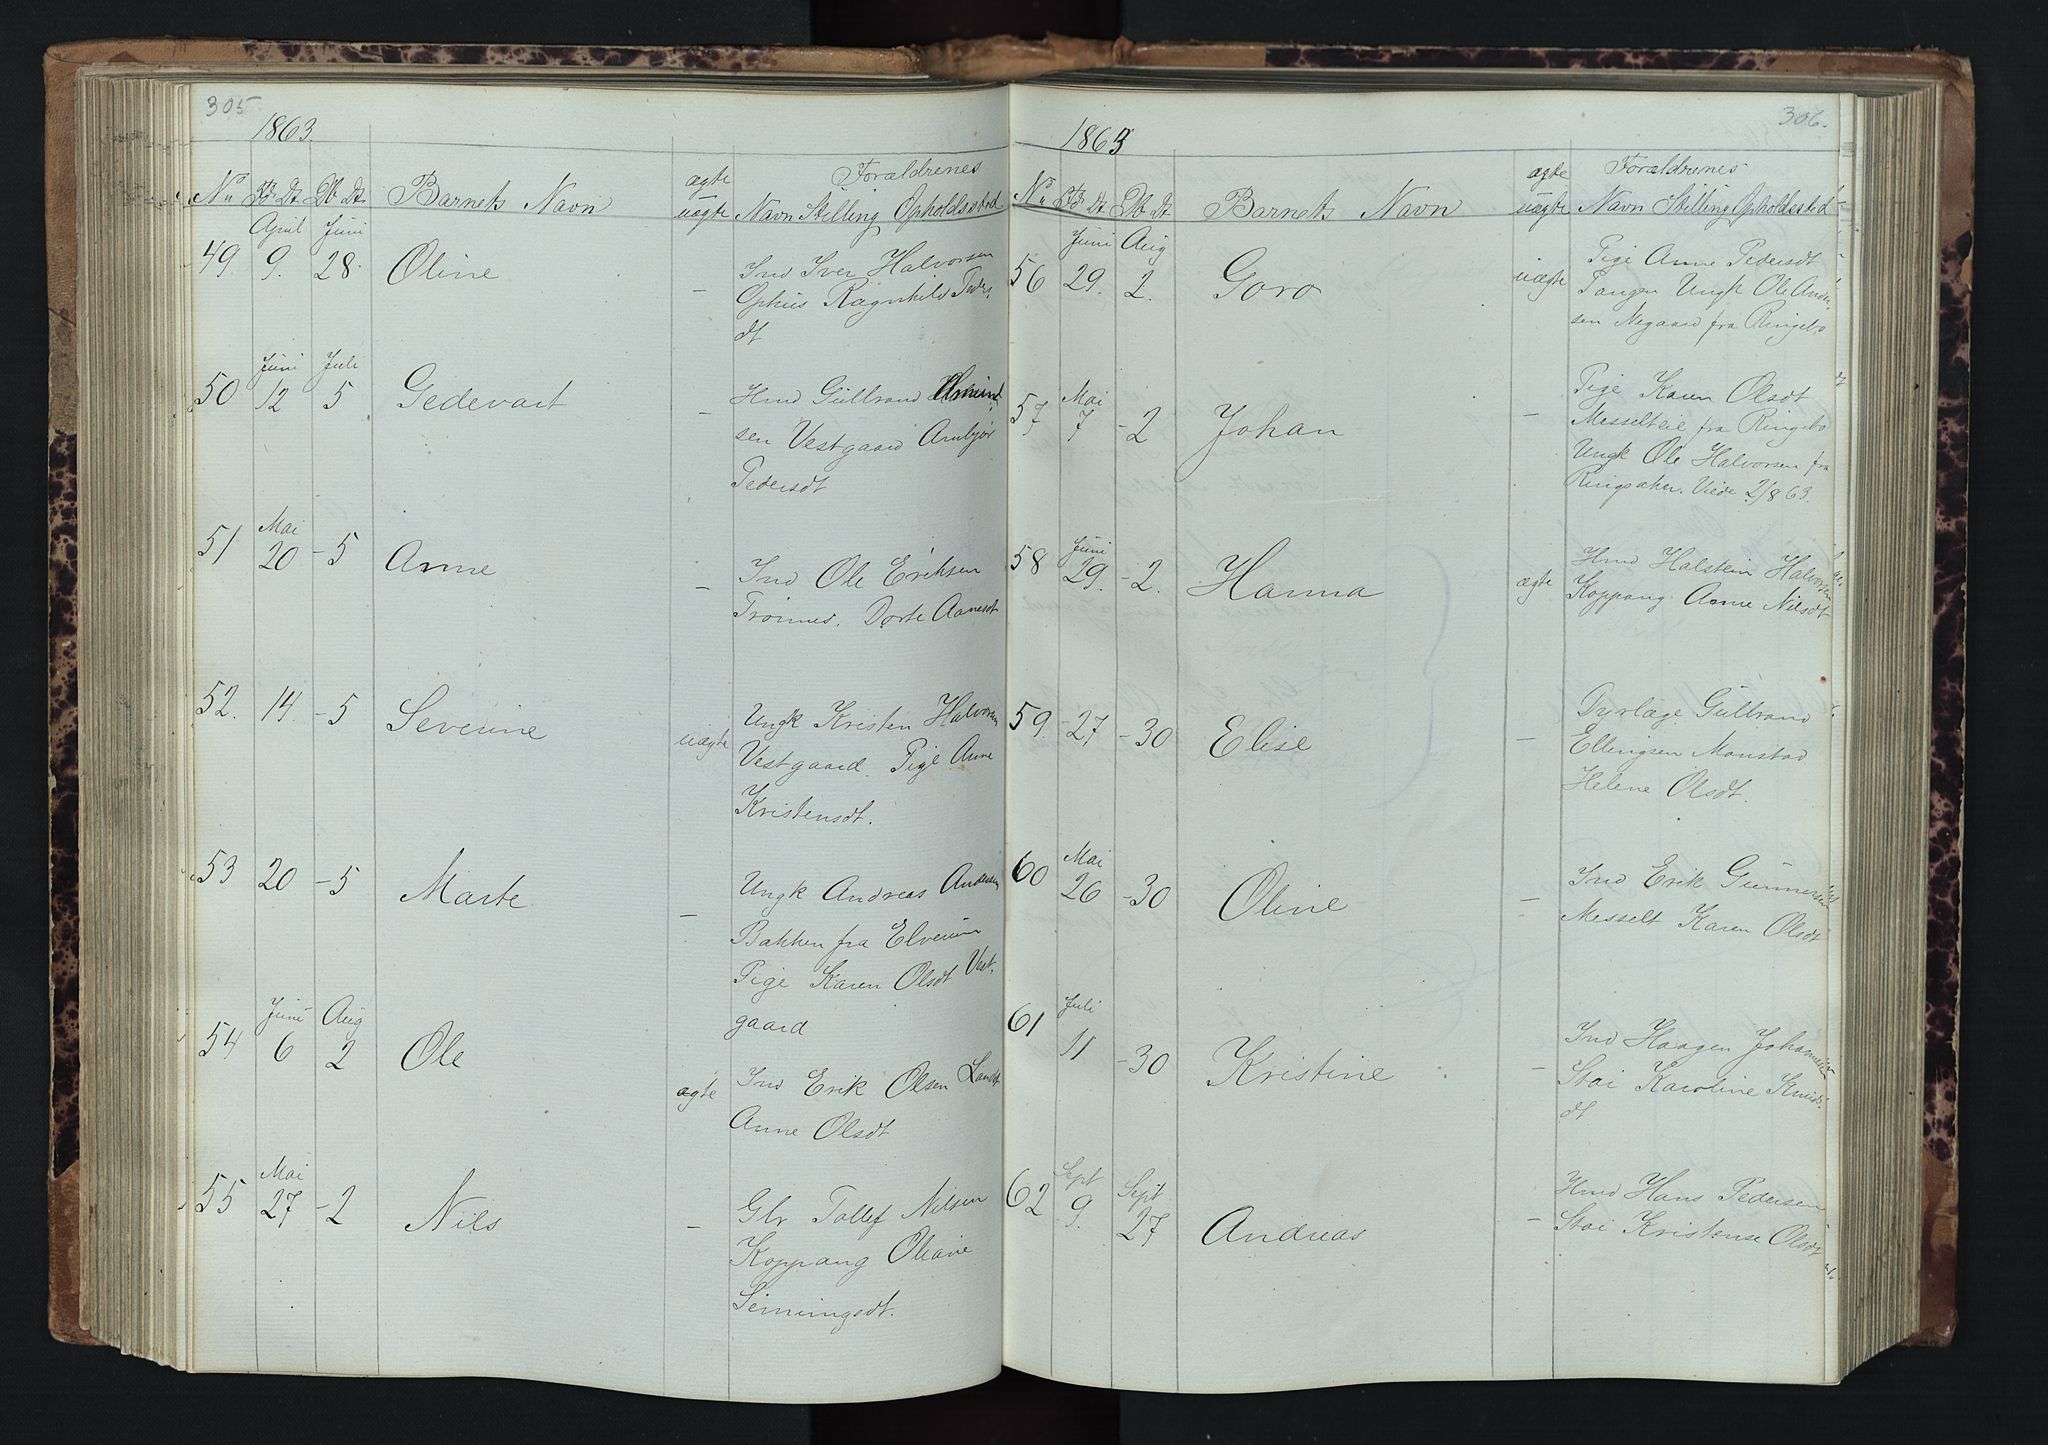 305
1863.
Barnets Navn
ægte
uægte
Forældrenes
Navn Stilling Opholdssted
April
Juni
49. 9. 28. Oline
-
Ind Iver Halvorsen
Ophus Ragnhild Peders
dt
Juni
Juli
50 12 5 Gedevart
-
Hmd Gulbrand
sen Vestgaard Ambjør
Pedersdt
Mai
51 20 -5 Anne
-
Ind Ole Eriksen
Trønnes. Dorte Aanesdt
52. 14. -5 Severine
uægte
Ungk Kristen Halvorsen
Vestgaard. Pige Anne
Kristensdt.
53 20 -5 Marte
-
Ungk Andreas Andersen
Bakken fra Elverum
Pige Karen Olsdt Vest-
gaard
Juni
Aug
54 6 2 Ole
ægte
Ind Erik Olsen
Anne Olsdt
Mai
55 27 -2 Nils
-
Glr Tollef Nilsen
Koppang Oliane
306.
1863
Barnets Navn
ægte
uægte
Forældrenes
Navn Stilling Opholdssted
Juni
Aug
56 29. 2. Goro
uægte
Pige Anne Pedersdt
Tangen Ungk Ole Ander-
sen Negaard fra Ringebo
Mai
57 7 -2 Johan
-
Pige Karen Olsdt
Messelteie fra Ringebo
Ungk Ole Halvorsen fra
Ringsaker. Viede 2/8 63.
Juni
58 29. -2. Hanna
ægte
Hmd Halstein Halvorsen
Koppang. Anne Nilsdt
59. -27 -30 Elise
-
Gulbrand
Ellingsen Monstad
Helene Olsdt.
Mai
60 26 -30 Oline
-
Ind Erik Gunnersen
Messelt Karen Olsdt
Juli
61 11 -30 Kristine
-
Ind Haagen Johannesen
Stai Karoline Knuds
dt
Sept
Sept
62 9. 27 Andreas
-
Hmd Hans Pedersen
Stai Kristense Olsdt